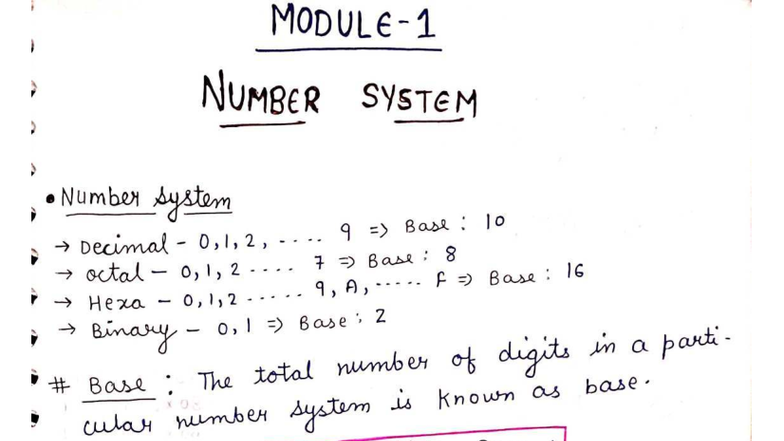 MODULE-1
NUMBER SYSTEM
• Number System
→ Decimal - 0,1,2, ---- 9 => Base : 10
→ octal - 0,1,2 ---- 7 => Base : 8
→ Hexa - 0,1,2 ----- 9, A, ----- F => Base : 16
→ Binary - 0,1 => Base : 2
# Base : The total number of digits in a parti-
cular number system is known as base.